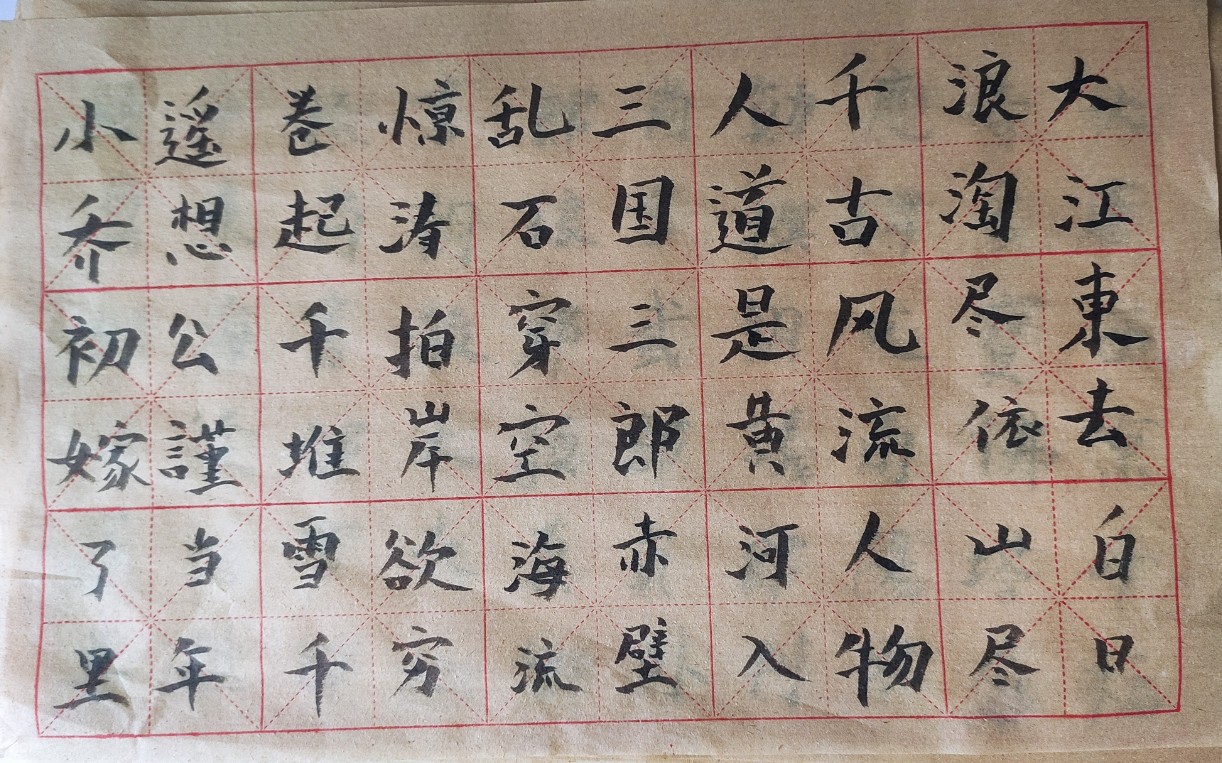 大江東去白日
浪淘尽依山尽
千古风流人物
人道是黄河入
三国三郎赤壁
乱石穿空海流
惊涛拍岸欲穷
卷起千堆雪千
遥想公謹当年
小乔初嫁了里